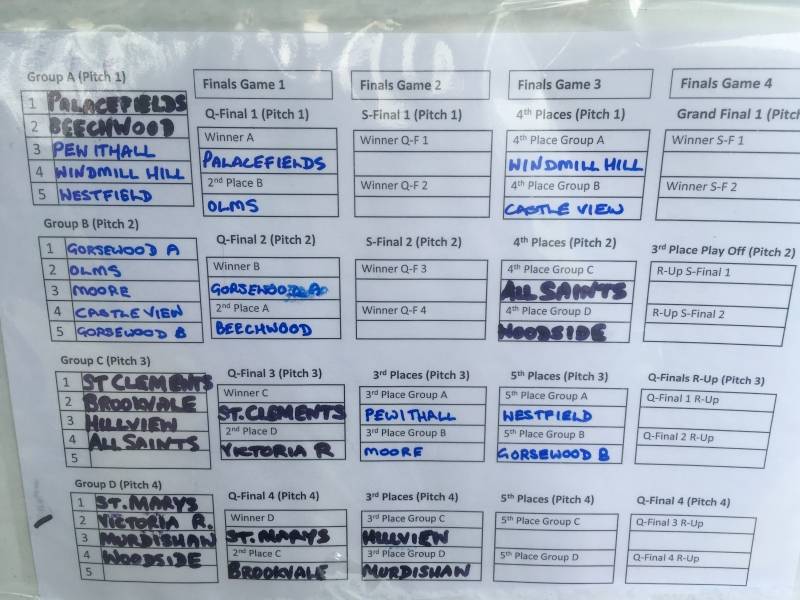 Group A (Pitch 1)
1 PALACEFIELDS
2 BEECHWOOD
3 PEWITHALL
4 WINDMILL HILL
5 WESTFIELD
Group B (Pitch 2)
1 GORSEWOOD A
2 OLMS
3 MOORE
4 CASTLE VIEW
5 GORSEWOOD B
Group C (Pitch 3)
1 ST CLEMENTS
2 BROOKVALE
3 HILLVIEW
4 ALL SAINTS
5
Group D (Pitch 4)
1 ST. MARYS
2 VICTORIA R.
3 MURDISHAW
4 WOODSIDE
5
Finals Game 1
Q-Final 1 (Pitch 1)
Winner A
PALACEFIELDS
2nd Place B
OLMS
Q-Final 2 (Pitch 2)
Winner B
GORSEWOOD A
2nd Place A
BEECHWOOD
Q-Final 3 (Pitch 3)
Winner C
ST. CLEMENTS
2nd Place D
VICTORIA R
Q-Final 4 (Pitch 4)
Winner D
ST. MARYS
2nd Place C
BROOKVALE
Finals Game 2
S-Final 1 (Pitch 1)
Winner Q-F 1
Winner Q-F 2
S-Final 2 (Pitch 2)
Winner Q-F 3
Winner Q-F 4
3rd Places (Pitch 3)
3rd Place Group A
PEWITHALL
3rd Place Group B
MOORE
3rd Places (Pitch 4)
3rd Place Group C
HILLVIEW
3rd Place Group D
MURDISHAW
Finals Game 3
4th Places (Pitch 1)
4th Place Group A
WINDMILL HILL
4th Place Group B
CASTLE VIEW
4th Places (Pitch 2)
4th Place Group C
ALL SAINTS
4th Place Group D
WOODSIDE
5th Places (Pitch 3)
5th Place Group A
WESTFIELD
5th Place Group B
GORSEWOOD B
5th Places (Pitch 4)
5th Place Group C
5th Place Group D
Finals Game 4
Grand Final 1 (Pitch
Winner S-F 1
Winner S-F 2
3rd Place Play Off (Pitch 2)
R-Up S-Final 1
R-Up S-Final 2
Q-Finals R-Up (Pitch 3)
Q-Final 1 R-Up
Q-Final 2 R-Up
Q-Final 4 (Pitch 4)
Q-Final 3 R-Up
Q-Final 4 R-Up